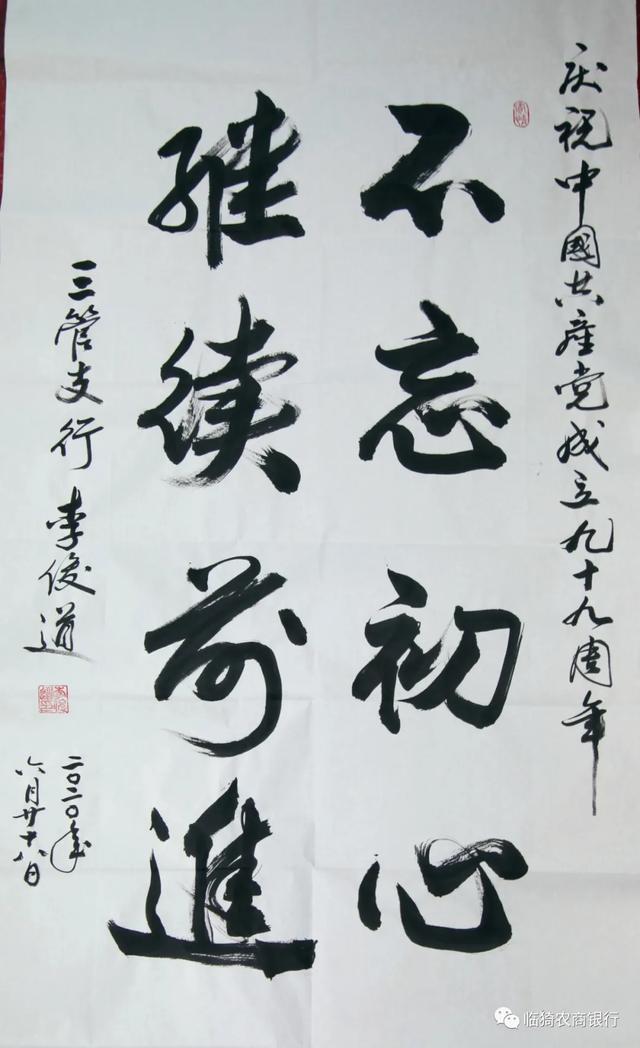 庆祝中國共産党成立九十九周年
不忘初心
继续前進
三管支行 李俊道
二〇二〇年
六月廿十八日
临猗农商银行